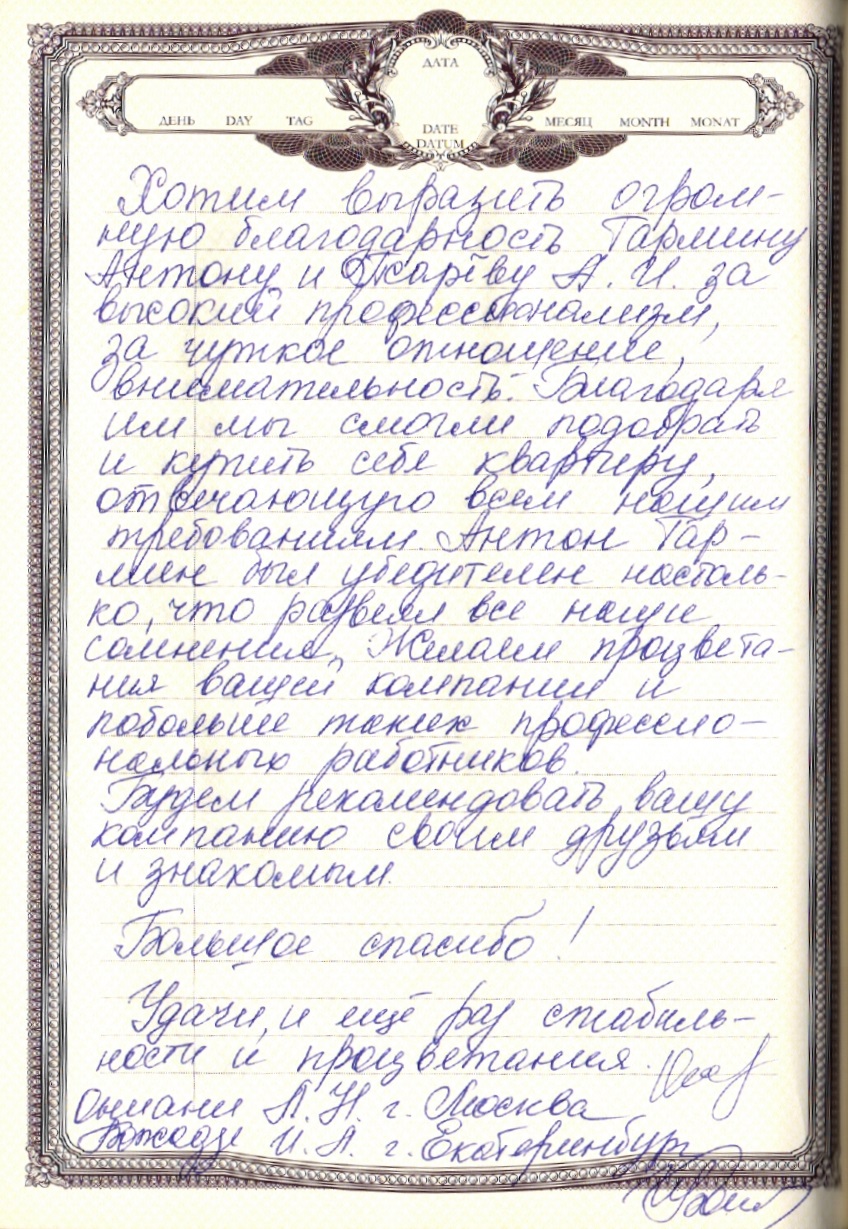 ДАТА
ДЕНЬ DAY TAG
МЕСЯЦ MONTH MONAT
DATE
DATUM
Хотим выразить огром-
ную благодарность Гармину
Антону и А. И. за
высокий профессионализм,
за чуткое отношение,
внимательность. Благодаря
им мы смогли подобрать
и купить себе квартиру,
отвечающую всем нашим
требованиям. Антон Гар-
мин был убедителен настоль-
ко, что развеял все наши
сомнения. Желаем процвета-
ния вашей компании и
побольше таких профессио-
нальных работников.
Будем рекомендовать вашу
компанию своим друзьям
и знакомым.
Большое спасибо!
Удачи, и ещё раз стабиль-
ности и процветания.
г. Москва
г. Екатеринбург